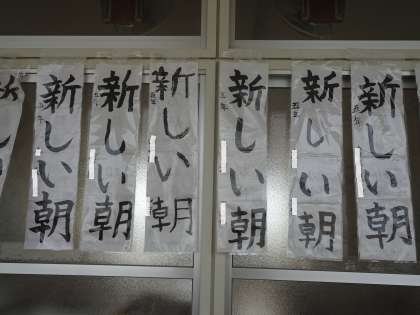 新しい朝
新しい朝
新しい朝
新しい朝
新しい朝
新しい朝